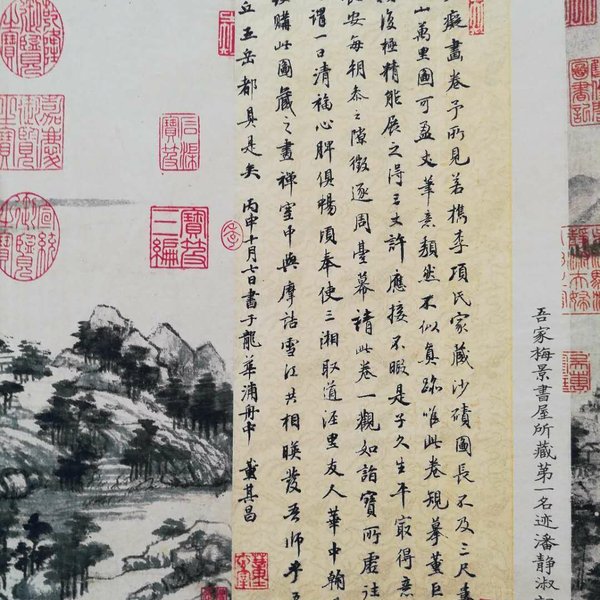 吾家梅景書屋所藏第一名迹潘静淑
癡畫卷予所見若檇李項氏家藏沙磧圖長不及三尺
山萬里圖可盈丈筆意頹然不似真跡唯此卷規摹董巨
復極精能展之得三丈許應接不暇是子久生平最得意
安每朝參之隙徵逐周臺幕請此卷一觀如詣寶所虛往
謂一日清福心脾俱暢頃奉使三湘取道涇里友人華中翰
購此圖藏之畫禪室中與摩詰雪江共相映發吾師乎
丘五岳都具是矣 丙申十月七日書于龍華浦舟中 董其昌
石渠寶笈
寶笈三編
嘉慶御覽之寶